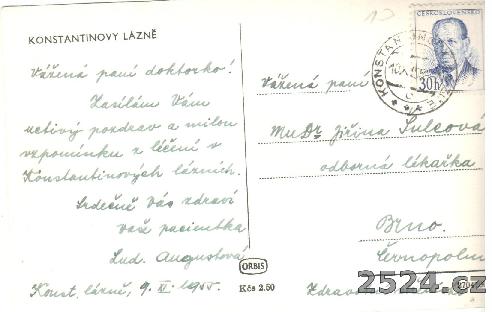 KONSTANTINOVY LÁZNĚ
Vážená paní doktorko!
Zasílám Vám
uctivý pozdrav a milou
vzpomínku z léčení v
Konstantinových lázních.
Srdečně Vás zdraví
vaše pacientka
Lud. Augustová
Konst. lázně, 9. XI. 1955.
ORBIS
Kčs 2.50
ČESKOSLOVENSKO
30h
Vážená paní
MuDr Jiřina Šulcová
odborná lékařka
Brno.
Černopolní
Zdrav
2524.cz